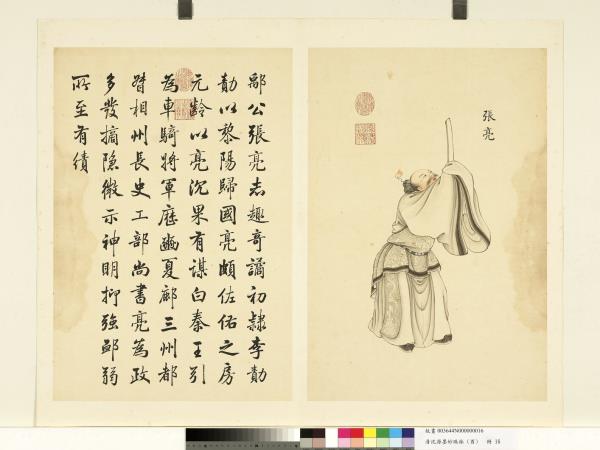 張亮
鄖公張亮志趣奇譎初隸李勣
勣以黎陽歸國亮頗佐佑之房
元齡以亮沉果有謀白秦王引
為車騎將軍歷豳夏鄜三州都
督相州長史工部尚書亮為政
多發摘隱微示神明抑強卹弱
所至有績
故畫 003644N000000016
清沈源墨妙珠林（酉） 冊 16